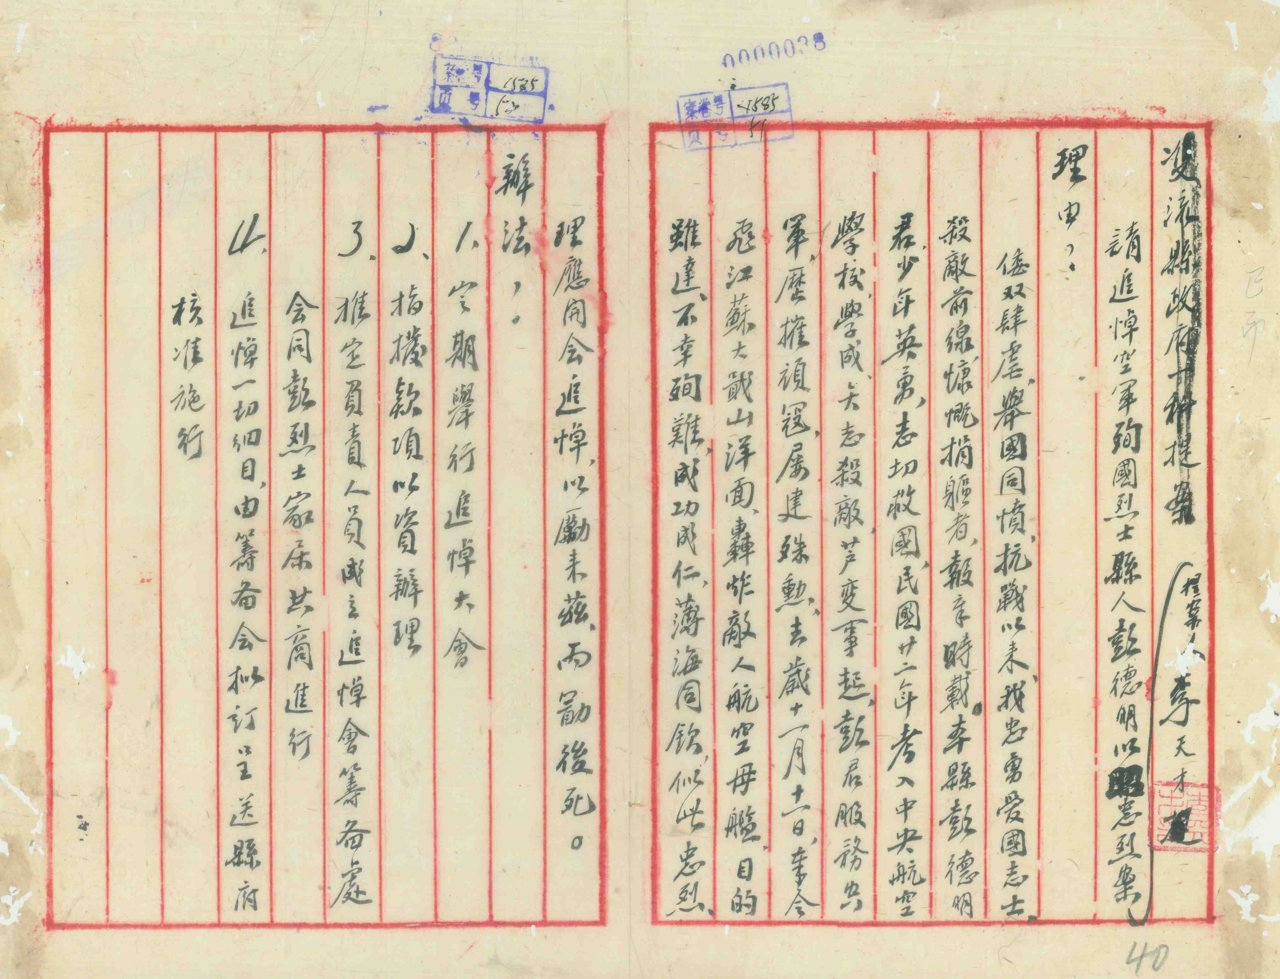 0000038
案卷号 1585
页号 51
双流縣政府十科提案
(提案人 李天才
請追悼空軍殉國烈士縣人彭德明以昭忠烈案)
理由：
倭奴肆虐,舉國同憤,抗戰以来,我忠勇愛國志士,
殺敵前線,慷慨捐軀者,報章時載。本縣彭德明
君,少年英勇,志切救國,民國廿二年考入中央航空
學校,學成,矢志殺敵,芦变事起,彭君服務空
軍,歷摧頑寇,屡建殊勳,去歲十一月十一日,奉令
飛江蘇大戢山洋面,轟炸敵人航空母艦,目的
雖達,不幸殉難,成功成仁,薄海同欽,似此忠烈,
40
案卷号 1585
页号 52
理應開会追悼,以勵来兹,而勖後死。
辦法：
1、定期舉行追悼大會
2、指撥款項以資辦理
3、推定負責人員成立追悼會籌备處
会同彭烈士家屬共商進行
4、追悼一切細目,由籌备会拟訂呈送縣府
核准施行